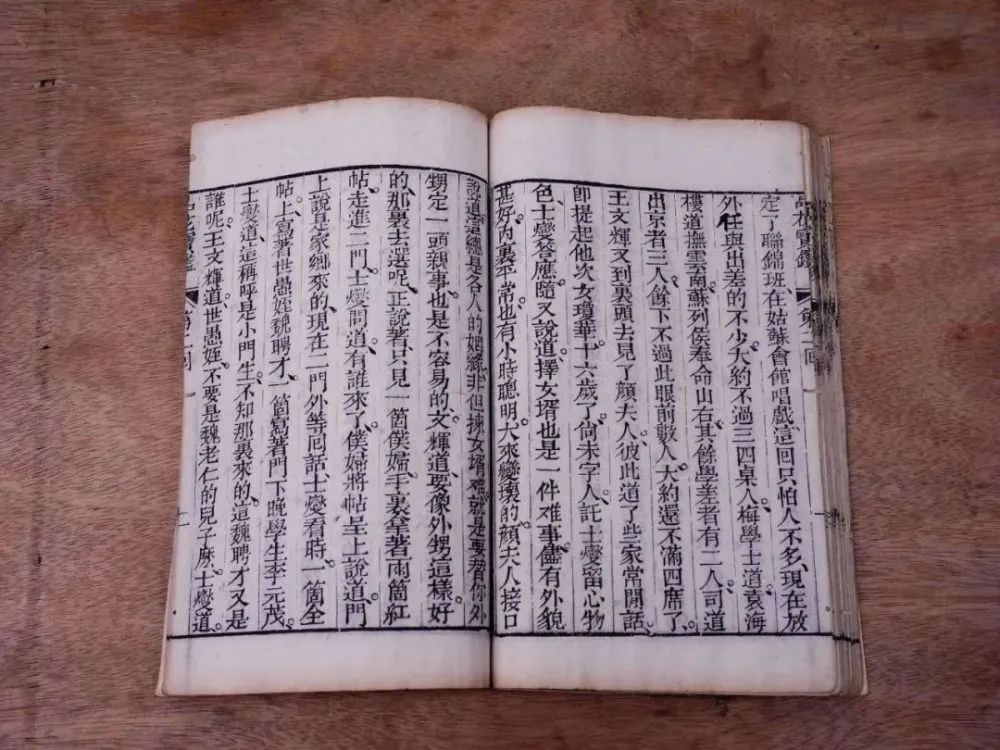 品花寶鑑 第二回
定了聯錦班、在姑蘇會館唱戲、這回只怕人不多、現在放
外任與出差的不少、大約不過三四桌人、梅學士道、袁海
樓道撫雲南、蘇列侯奉命山右、其餘學差者有二人、司道
出京有三人、餘下不過此眼前數人、大約還不滿四席了、
王文輝又到裏頭去見了顏夫人、彼此道了些家常閒話、
即提起他次女瓊華十六歲了、尚未字人、託士燮留心物
色、士燮答應、隨又說道、擇女壻也是一件难事、儘有外貌
甚好、內裏平常、也有小時聰明、大來變壞的、顏夫人接口
說道、這總是各人的姻緣、非但揀女壻难、就是要替你外
甥定一頭親事、也是不容易的、文輝道、要像外甥這樣好
的、那裏去選呢、正說著、只見一箇僕婦、手裏拿著兩箇紅
帖、走進二門、士燮問道、有誰來了、僕婦將帖呈上說道、門
上說是家鄉來的、現在二門外等囘話、士燮看時、一箇全
帖上、寫著世愚姪魏聘才、一箇寫著門下晚學生李元茂、
士燮道、這稱呼是小門生、不知那裏來的、這魏聘才又是
誰呢、王文輝道、世愚姪、不要是魏老仁的兒子麽、士燮道、
品花寶鑑 第二回